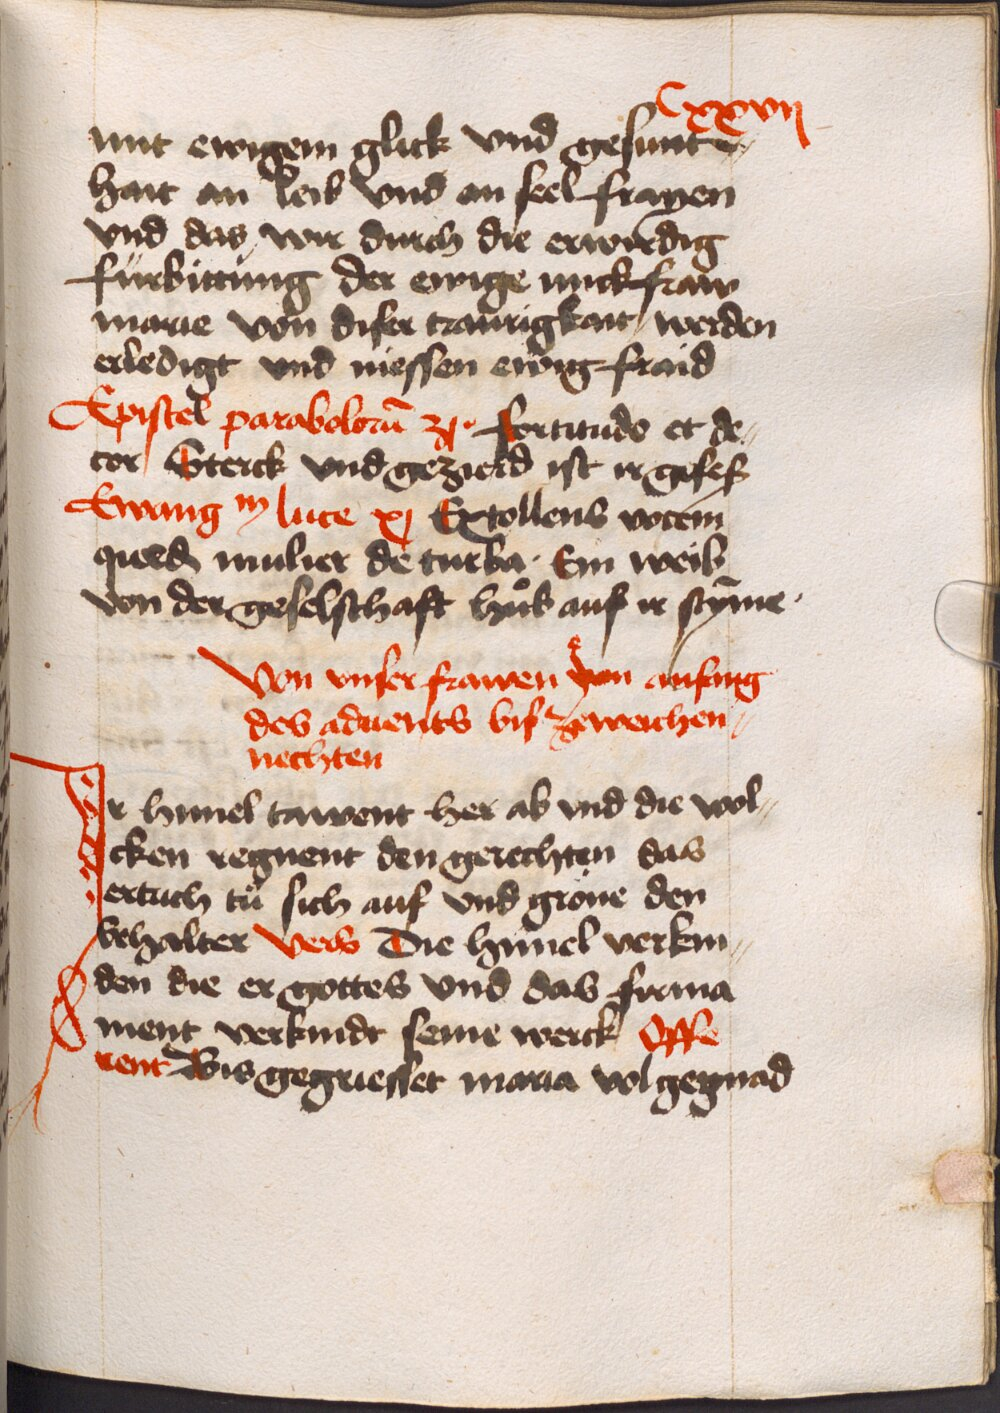 Cxxvij
mit ewigem glick vnd gesunt-
hait an leib vnd an seel frayen
vnd das wir durch die erwirdig
fürbittung der ewige iunckfraw
marie von diser traurigkait werden
erledigt vnd niessen ewig fraid
Epistel parabolorū Fortitudo et de-
cor Sterck vnd gezierd ist ir gefess
Ewang luce xj Extollens vocem
quedā mulier de turba · Ein weib
von der geselschaft hůb auf ir stȳme ·
Von vnser frawen von anfang
des aduents bis zeweichen
nechten
Ir himel tawent her ab vnd die wol-
cken regnent den gerechten das
ertrich tü sich auf vnd gröne den
behalter Vers Die himel verkin-
den die er gottes vnd das firma
ment verkindt seine werck Offe
rent Bis gegriesset maria vol gegnad